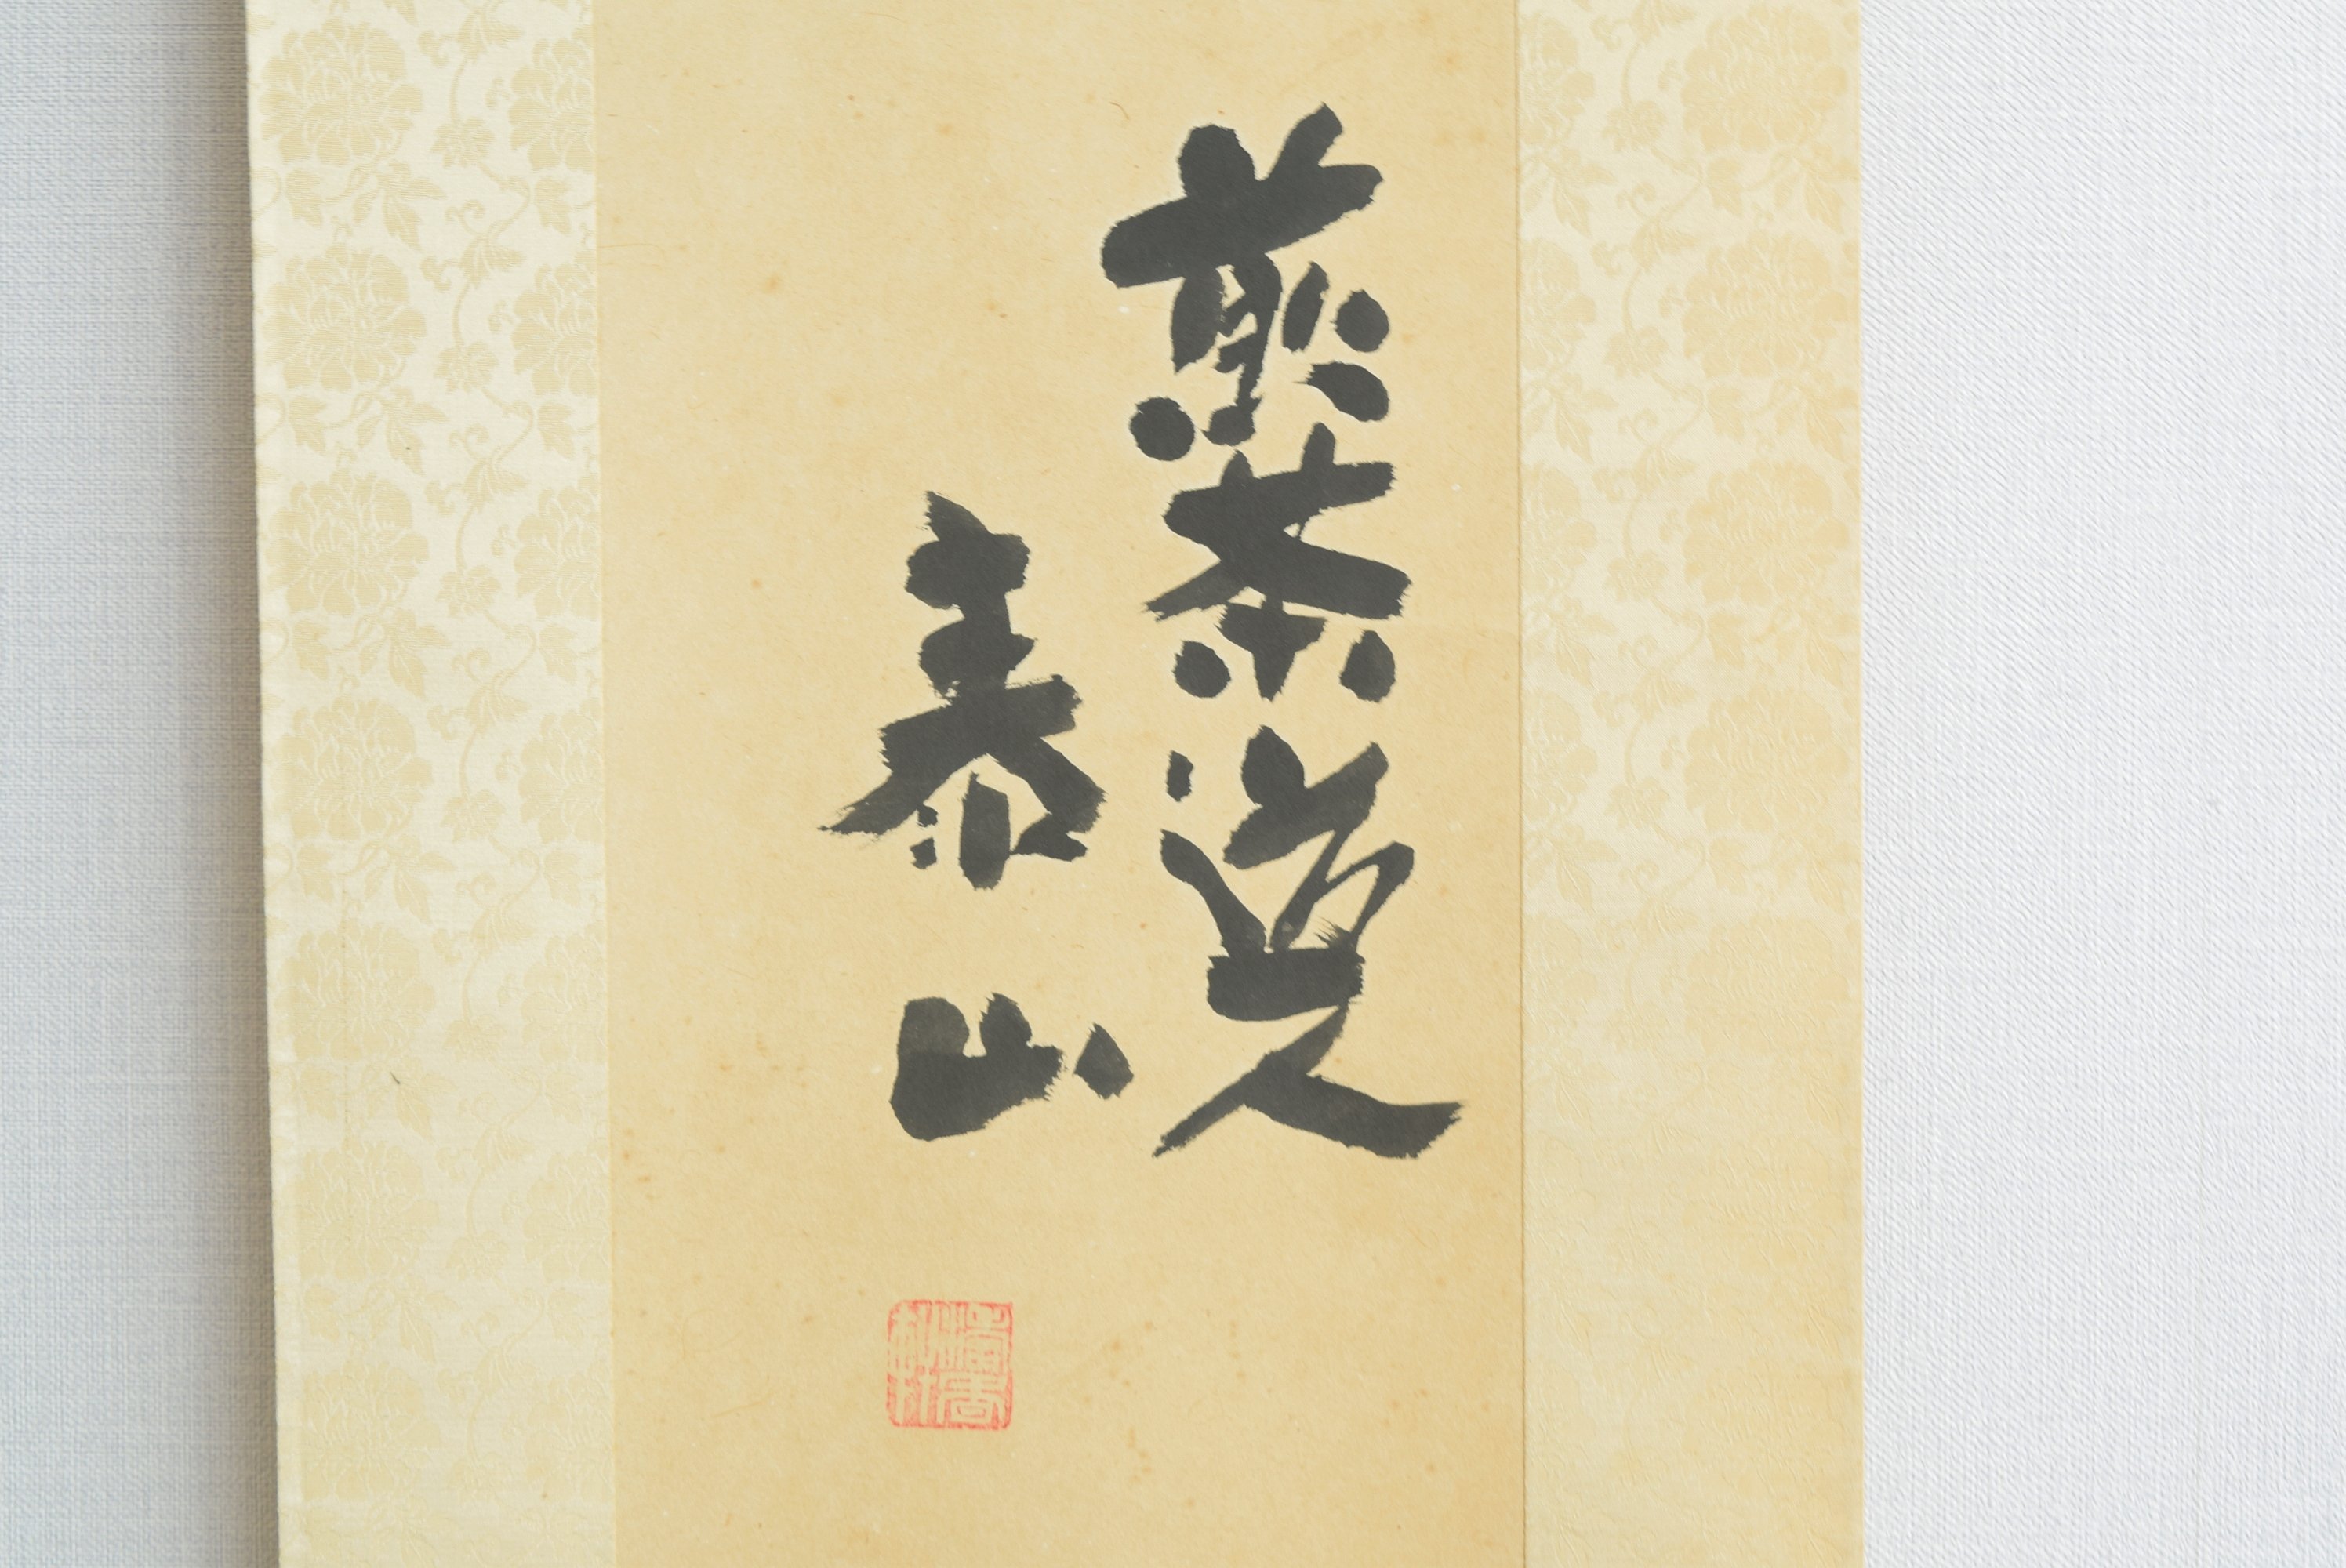 煎茶道
泰山